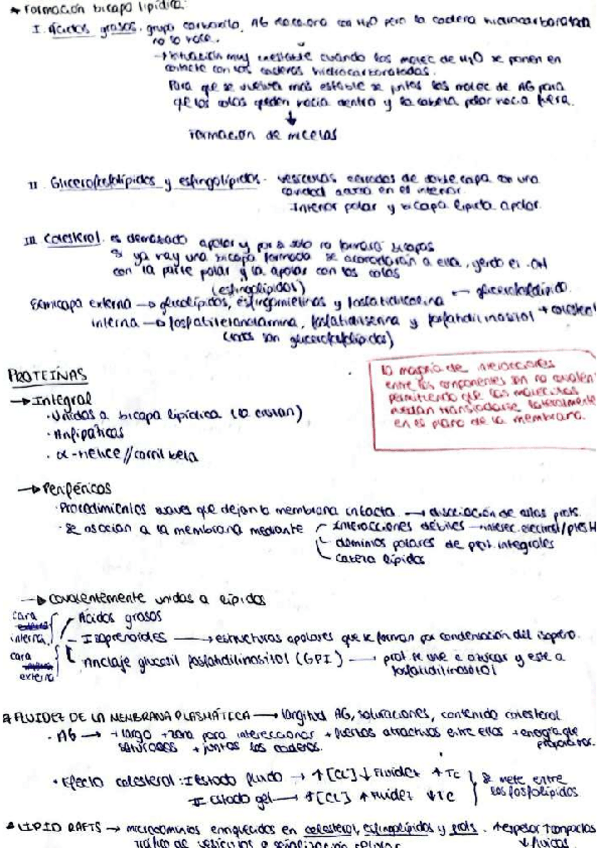 * Formación bicapa lipídica:
I. Ácidos grasos. grupo carboxilo, AG reacciona con H2O pero la cadena hidrocarbonada
no lo hace.
→ situación muy inestable cuando las molec de H2O se ponen en
contacto con las cadenas hidrocarbonadas.
Para que se vuelva más estable se juntan las molec de AG para
que las colas queden hacia dentro y la cabeza polar hacia fuera.
↓
Formación de micelas
II. Glicerofosfolípidos y esfingolípidos. vesículas cerradas de doble capa con una
cavidad acuosa en el interior.
Interior polar y bicapa lipídica apolar.
III. Colesterol. es demasiado apolar y por si solo no formará bicapas
si ya hay una bicapa formada se acomodarán a ella, yendo el -OH
con la parte polar y la apolar con las colas
(esfingolípidos)
Semicapa externa → glicolípidos, esfingomielinas y fosfatidilcolina ← glicerofosfolípido.
interna → fosfatiletanolamina, fosfatidilserina y fosfatidilinositol + colesterol
(todos son glicerofosfolípidos)
PROTEÍNAS
la mayoría de interacciones
entre los componentes son no covalen
permitiendo que las moléculas
puedan transladarse lateralmente
en el plano de la membrana.
→ Integral
· Unidas a bicapa lipídica (la cruzan)
· Anfipáticas
· α-hélice // barril beta
→ Periféricas
· Procedimientos suaves que dejan la membrana intacta → disociación de estas prots.
· Se asocian a la membrana mediante
Interacciones débiles
dominios polares de prot. integrales
cabeza lípidos
→ Covalentemente unidas a lípidos
cara interna
Ácidos grasos
Isoprenoides → estructuras apolares que se forman por condensación del isopreno.
cara externa
Anclaje glucosil fosfatidilinositol (GPI) → prot. se une a azúcar y este a
fosfatidilinositol
* FLUIDEZ DE LA MEMBRANA PLASMÁTICA → longitud AG, saturaciones, contenido colesterol
· AG → + largo + zona para interaccionar + fuerzas atractivas entre ellos + energía que
saturados + juntas las cadenas. proporcionar.
· Efecto colesterol: I Estado fluido → ↑[CL] ↓ Fluidez ↑Tc
II Estado gel → ↑[CL] ↑ Fluidez ↓Tc
Se mete entre
los fosfolípidos
* LIPID RAFTS → microdominios enriquecidos en colesterol, esfingolípidos y prots. + espesor + compactos
tráfico de vesículas o señalización celular. ↓ fluidos